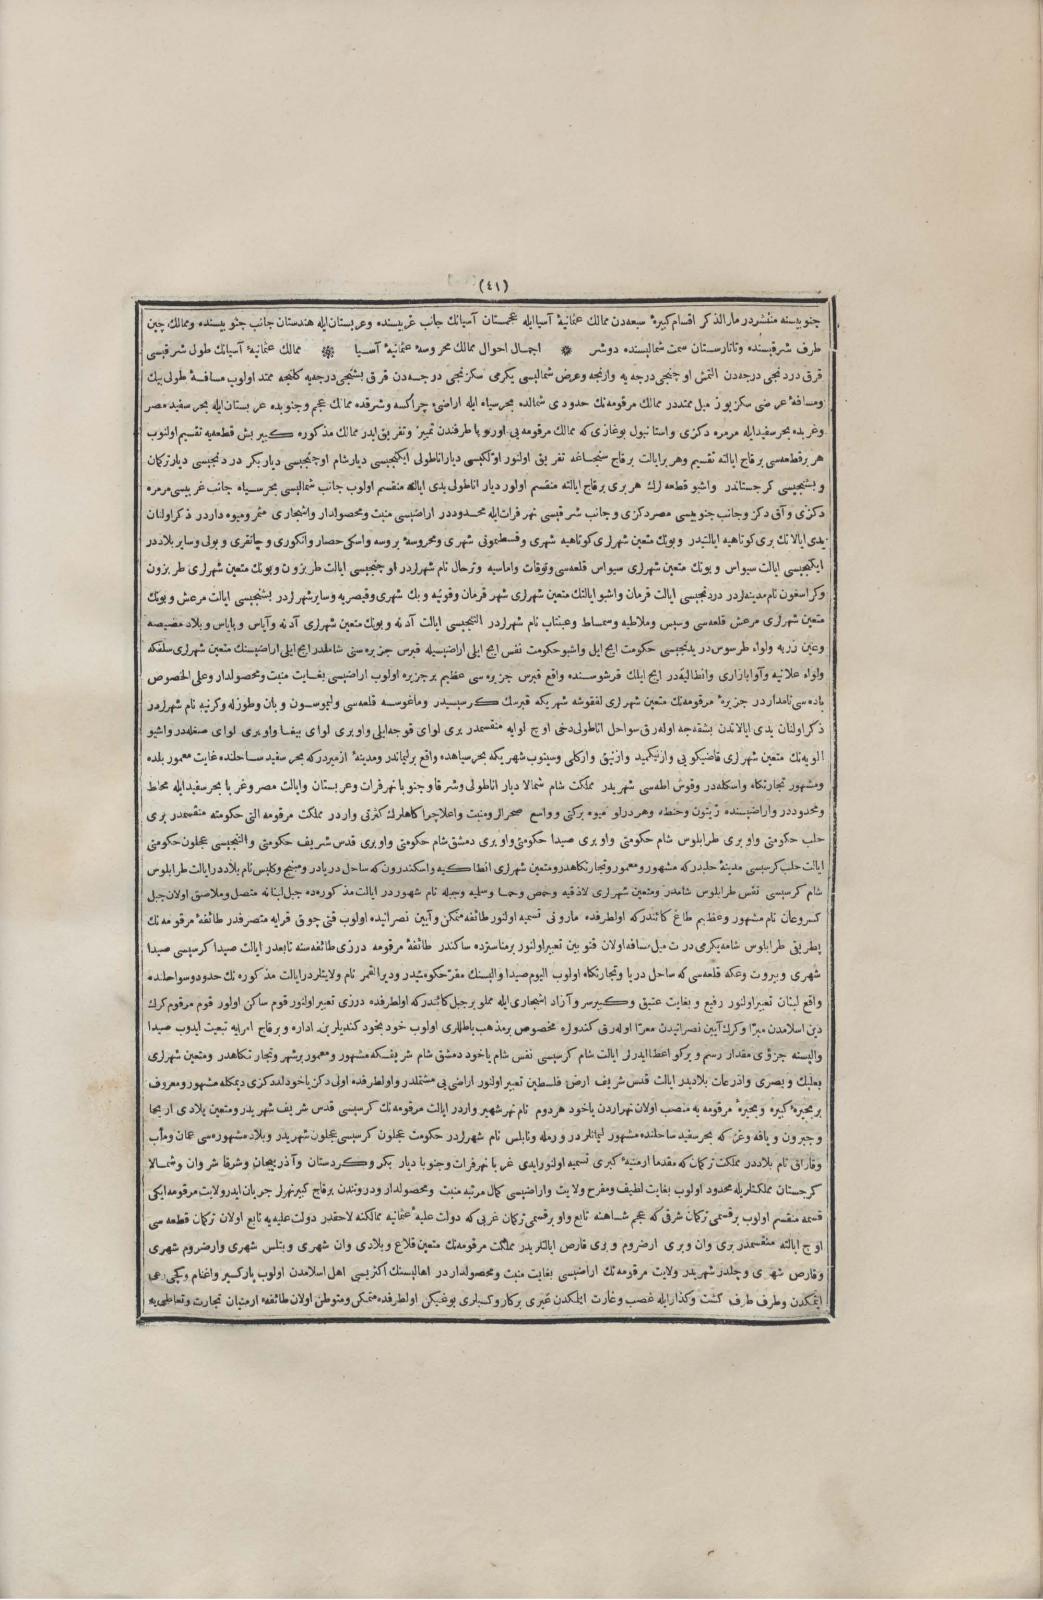 (٤١)
جنوبيسنه منتشردر مارالذكر اقسام كبيرۀ سبعه‌دن ممالك عثمانيۀ آسياايله عجمستان آسيانك جانب غربيسنده وعربستان ايله هندستان جانب جنوبيسنده وممالك چين
طرف شرقيسنده وتاتارستان سمت شماليسنده دوشر ❋ اجمال احوال ممالك محروسۀ عثمانيۀ آسيا ❋ ممالك عثمانيۀ آسيانك طول شرقيسى
قرق دردنجى درجه‌دن التمش اوچنجى درجه يه وارنجه وعرض شماليسى يكرمى سكزنجى درجه‌دن قرق بشنجى درجه‌يه كلنجه ممتد اولوب مسافۀ طولى بيك
ومسافۀ عرضى سكزيوز ميل ممتددر ممالك مرقومه‌نك حدودى شمالده بحرسياه ايله اراضئ چراكسه وشرقده ممالك عجم وجنوبده عربستان ايله بحرسفيد مصر
وغربده بحرسفيدايله مرمره دكزى واستانبول بوغازى كه ممالك مرقومه‌يى اوروپا طرفندن تمييز وتفريق ايدر ممالك مذكوره كبير بش قطعه‌يه تقسيم اولنوب
هر برقطعه‌سى برقاج ايالته تقسيم وهر برايالت برقاج سنجاغه تفريق اولنور اولكيسى دياراناطولى ايكنجيسى ديارشام اوچنجيسى دياربكر دردنجيسى ديارتركمان
وبشنجيسى كرجستاندر واشبو قطعه‌لرك هربرى برقاج ايالته منقسم اولور ديار اناطولى يدى ايالته منقسم اولوب جانب شماليسى بحرسياه جانب غربيسى مرمره
دكزى وآق دكز وجانب جنوبيسى مصردكزى وجانب شرقيسى نهرفرات‌ايله محدوددر اراضيسى منبت ومحصولدار واشجارى مثمر وميوه داردر ذكراولنان
يدى ايالاتك برى كوتاهيه ايالتيدر وبونك متعين شهرلرى كوتاهيه شهرى وقسطمونى شهرى ومحروسۀ بروسه واسكى حصار وانكورى وچانقرى وبولى وسايربلاددر
ايكنجيسى ايالت سيواس وبونك متعين شهرلرى سيواس قلعه‌سى وتوقات واماسيه وترحال نام شهرلردر اوچنجيسى ايالت طربزون وبونك متعين شهرلرى طربزون
وكراسفون نام مدينه‌لردر دردنجيسى ايالت قرمان واشبو ايالتك متعين شهرلرى شهر قرمان وقونيه وبك شهرى وقيصريه وسايرشهرلردر بشنجيسى ايالت مرعش وبونك
متعين شهرلرى مرعش قلعه‌سى وسيس وملاطيه وسمساط وعينتاب نام شهرلردر التنجيسى ايالت آدنه وبونك متعين شهرلرى آدنه وآياس وپاياس وبلاد مصيصه
وعين زربه ولواء طرسوس‌در يدنجيسى حكومت ايچ ايل واشبوحكومت نفس ايچ ايلى اراضيسيله قبرس جزيره‌سنى شاملدر ايچ ايلى اراضيسنك متعين شهرلرى سلفكه
ولواء علائيه وآوابازارى وانطاليه‌در ايچ ايلك قرشوسنده واقع قبرس جزيره‌سى عظيم برجزيره اولوب اراضيسى بغايت منبت ومحصولدار وعلى الخصوص
باده‌سى نامداردر جزيرۀ مرقومه‌نك متعين شهرلرى لفقوشه شهريكه قبرسك كرسيسيدر وماغوسه قلعه‌سى وليموسون وبان وطوزله وكرنيه نام شهرلردر
ذكراولنان يدى ايالاتدن بشقه‌جه اوله‌رق سواحل اناطولى دخى اوچ لوايه منقسمدر برى لواى قوجه‌ايلى وبرى لواى بيغا وبرى لواى صغله‌در واشبو
الويه‌نك متعين شهرلرى قاضيكويى وازنيكميد وازنيق واركلى وسينوب شهريكه بحرسياهده واقع برليماندر ومدينۀ ازميردركه بحرسفيد ساحلنده غايت معمور بلده
ومشهور تجارتكاه واسكله‌در وقوش اطه‌سى شهريدر مملكت شام شمالا ديار اناطولى وشرقا وجنوبا نهرفرات وعربستان وايالت مصر وغربا بحرسفيدايله محاط
ومحدوددر واراضيسنده زيتون وحنطه وهردرلو ميوه بركتى وواسع صحرالر ومنبت واعلا چراكاهلرك كثرتى واردر مملكت مرقومه التى حكومته منقسمدر برى
حلب حكومتى وبرى طرابلوس شام حكومتى وبرى صيدا حكومتى وبرى دمشق شام حكومتى وبرى قدس شريف حكومتى والتنجيسى عجلون حكومتى
ايالت حلب كرسيسى مدينۀ حلبدركه مشهور ومعمور وتجارتكاهدر ومتعين شهرلرى انطاكيه واسكندرون كه ساحل دريادر ومنبج وكليس نام بلاددر ايالت طرابلوس
شام كرسيسى نفس طرابلوس شامدر ومتعين شهرلرى لاذقيه وحمص وحما وسلميه وجبله نام شهوردر ايالت مذكوره‌ده جبل لبنانه متصل وملاصق اولان جبل
كسروعان نام مشهور وعظيم طاغ كائندركه اولطرفده مارونى تسميه اولنور طائفه متمكن وآيين نصرانيده اولوب قتى چوق قرايه متصرفدر طائفۀ مرقومه‌نك
پطريقى طرابلوس شامه يكرمى درت ميل مسافه اولان قنوبين تعبير اولنور برمناستزده ساكندر طائفۀ مرقومه درزى طائفه‌سنه تابعدر ايالت صيدا كرسيسى صيدا
شهرى وبيروت وعكه قلعه‌سى كه ساحل دريا وتجارتكاه اولوب اليوم صيدا واليسنك مقر حكومتيدر وديرالقمر نام ولايتلردر ايالت مذكوره‌نك حدود وسواحلنده
واقع لبنان تعبيراولنور رفيع وبغايت عتيق وكبير سرو آزاد اشجارى ايله مملو برجبل كائندركه اولطرفده درزى تعبيراولنور قوم ساكن اولور قوم مرقوم كرك
دين اسلامدن مبرا وكرك آيين نصرانيدن معرا اوله‌رق كندولره مخصوص برمذهب باطللرى اولوب خود بخود كنديلرين اداره و برقاج امرايه تبعيت ايدوب صيدا
واليسنه جزؤى مقدار رسم وپركو اعطا ايدرلر ايالت شام كرسيسى نفس شام ياخود دمشق شام شريفكه مشهور ومعمور برشهر وتجارتكاهدر ومتعين شهرلرى
بعلبك وبصرى واذرعات بلاديدر ايالت قدس شريف ارض فلسطين تعبيراولنور اراضى‌يى مشتملدر واولطرفده اولى دكز ياخود لد دكزى ديمكله مشهور ومعروف
بربحيرۀ كبيره وبحيرۀ مرقومه يه منصب اولان نهراردن ياخود هردوم نام نهرشهير واردر ايالت مرقومه‌نك كرسيسى قدس شريف شهريدر ومتعين بلادى اريحا
وجبرون ويافه وغزه كه بحرسفيد ساحلنده مشهور ليمانلردر ورمله ونابلس نام شهرلردر حكومت عجلون كرسيسى عجلون شهريدر وبلاد مشهوره‌سى عمان ومأب
وقاراق نام بلاددر مملكت تركمان كه مقدما ارمنيۀ كبرى تسميه اولنورايدى غربا نهرفرات وجنوبا ديار بكر وكردستان وآذربيجان وشرقا شروان وشمالا
كرجستان مملكتلريله محدود اولوب بغايت لطيف ومفرح ولايت واراضيسى كمال مرتبه منبت ومحصولدار ودروننده برقاج كبير نهرلر جريان ايدر ولايت مرقومه ايكى
قسمه منقسم اولوب برقسمى تركمان شرقى كه عجم شاهنه تابع وبرقسمى تركمان غربى كه دولت عليۀ عثمانيه ممالكنه لاحقدر دولت عليه يه تابع اولان تركمان قطعه‌سى
اوچ ايالته منقسمدر برى وان وبرى ارضروم وبرى قارص ايالتلريدر مملكت مرقومه‌نك متعين قلاع وبلادى وان شهرى وبتليس شهرى وارضروم شهرى
وقارص شهرى وچلدر شهريدر ولايت مرقومه‌نك اراضيسى بغايت منبت ومحصولداردر اهاليسنك اكثريسى اهل اسلامدن اولوب ياركير واغنام وكچى رعى
ايتمكدن وطرف طرف كشت وكذارايله غصب وغارت ايتمكدن غيرى بركار وكسبلرى يوغيكن اولطرفده متمكن ومتوطن اولان طائفۀ ارمنيان تجارت وتعاطى‌يه